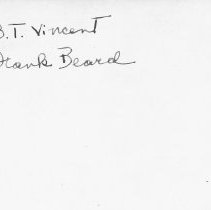 B.T. Vincent
Frank Beard